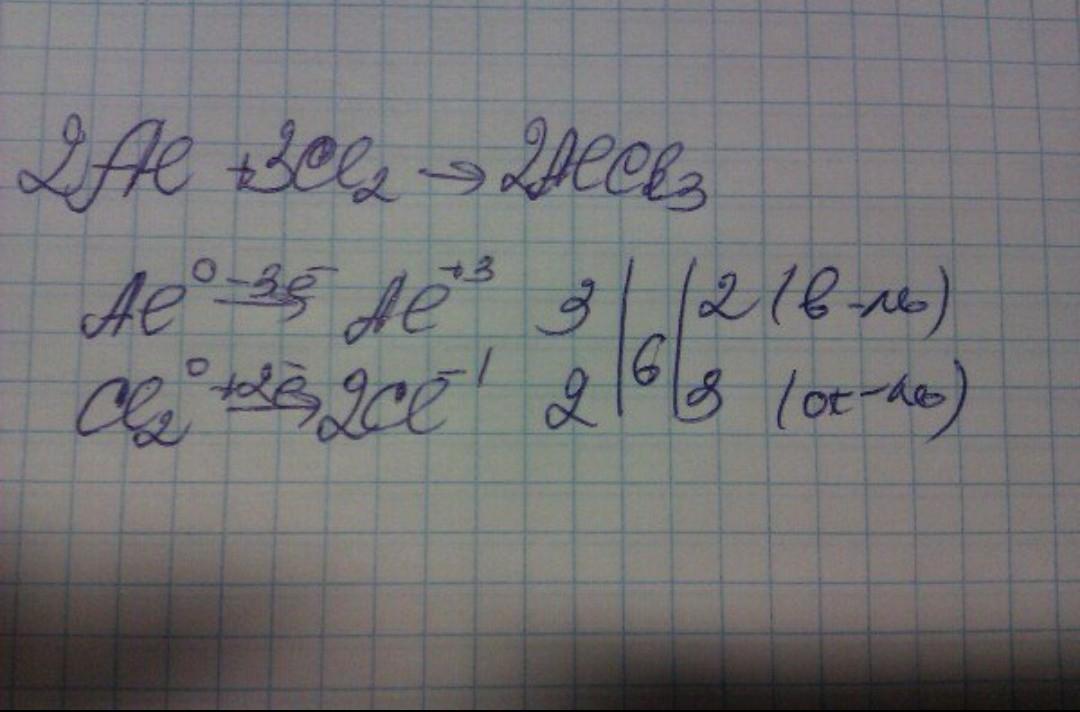 2Al + 3Cl₂ → 2AlCl₃
Al⁰ -3ē → Al⁺³ 3 | 6 | 2 (в-ль)
Cl₂⁰ +2ē → 2Cl⁻¹ 2 | 6 | 3 (ок-ль)